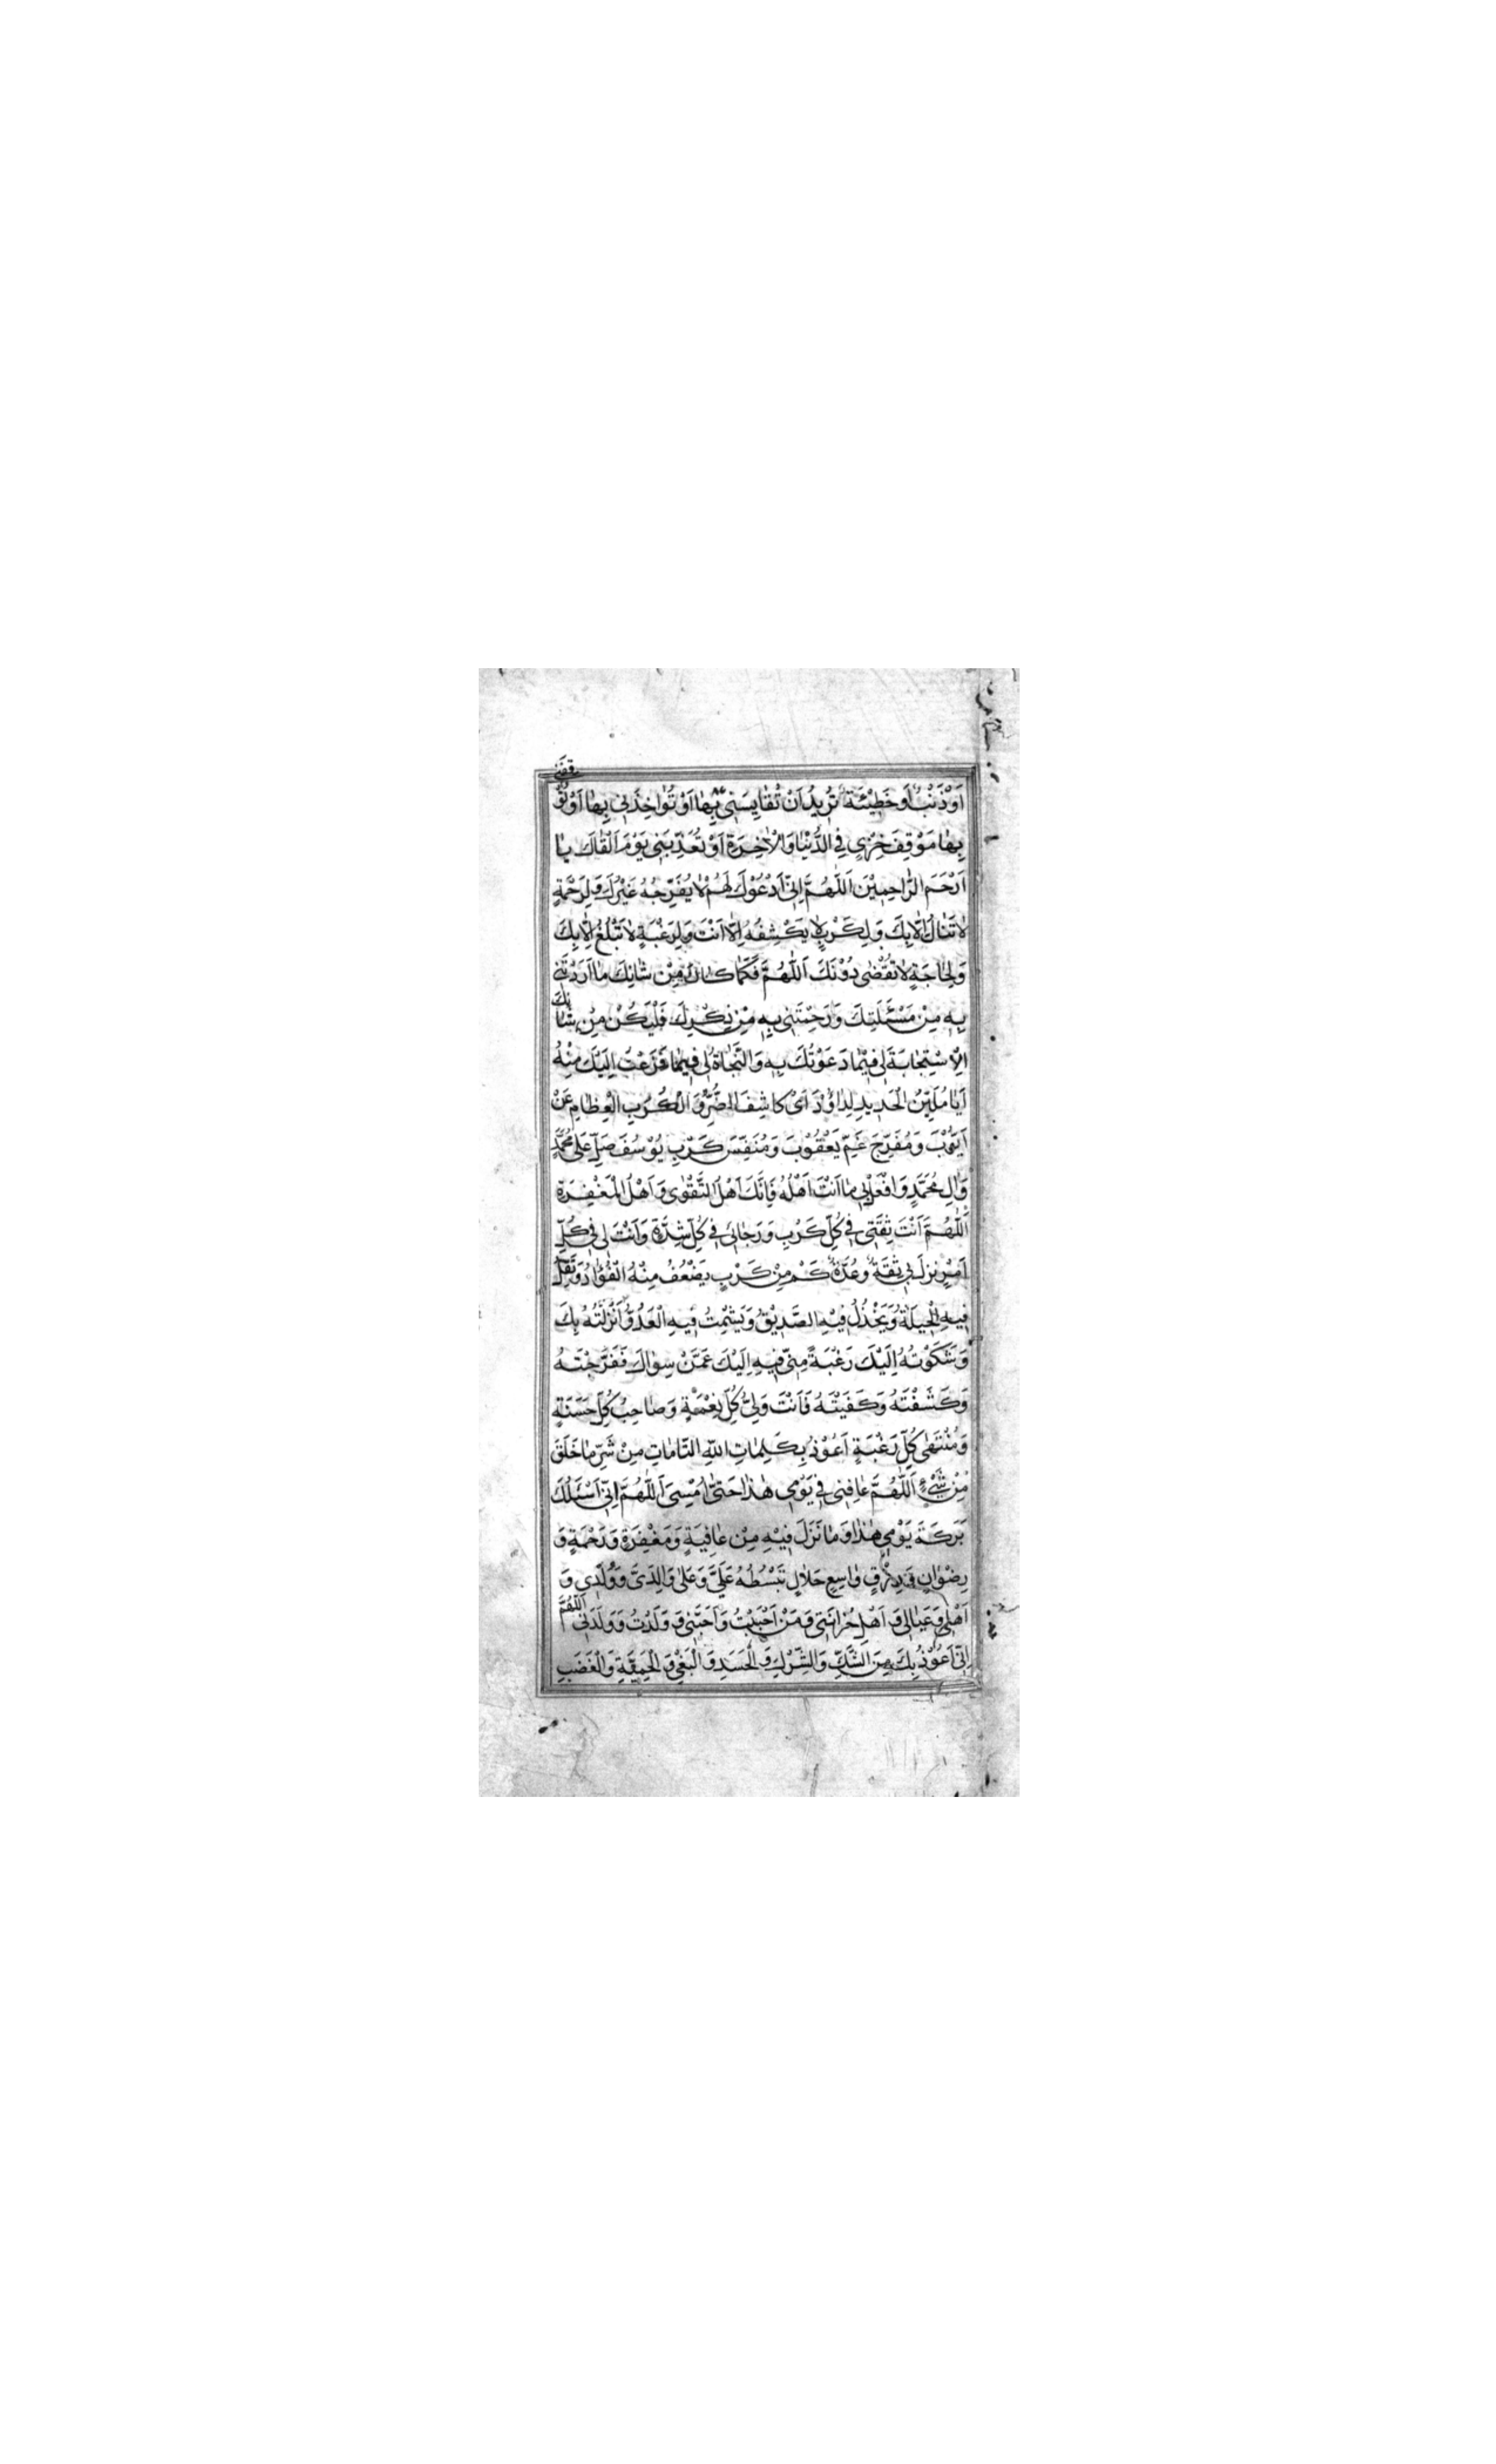 اَوْ ذَنْبٍ اَوْ خَطِيْئَةٍ تُرِيدُ اَنْ تُقٰايِسَنِى بِهٰا اَوْ تُوٰاخِذَنِى بِهٰا اَوْ تُوقِفَنِى
بِهٰا مَوْقِفَ خِزْىٍ فِى الدُّنْيٰا وَالْاٰخِرَةِ اَوْ تُعَذِّبَنِى يَوْمَ اَلْقٰاكَ يٰا
اَرْحَمَ الرّٰاحِمِيْنَ اَللّٰهُمَّ اِنِّى اَدْعُوْكَ لِهَمٍّ لٰا يُفَرِّجُهُ غَيْرُكَ وَلِرَحْمَةٍ
لٰا تَنٰالُ اِلّٰا بِكَ وَلِكَرْبٍ لٰا يَكْشِفُهُ اِلّٰا اَنْتَ وَلِرَغْبَةٍ لٰا تَبْلُغُ اِلّٰا بِكَ
وَلِحٰاجَةٍ لٰا تُقْضٰى دُوْنَكَ اَللّٰهُمَّ فَكَمٰا كٰانَ مِنْ شٰانِكَ مٰا اَرَدْتَنِى
بِهِ مِنْ مَسْئَلَتِكَ وَرَحِمْتَنِى بِهِ مِنْ ذِكْرِكَ فَلْيَكُنْ مِنْ شٰانِكَ
الْاِسْتِجٰابَةُ لِى فِيْمٰا دَعَوْتُكَ بِهِ وَالنَّجٰاةُ لِى فِيمٰا فَزَعْتُ اِلَيْكَ مِنْهُ
اَيٰا مُلَيِّنَ الْحَدِيدِ لِدٰاوُدَ اَىْ كٰاشِفَ الضُّرِّ وَالْكُرَبِ الْعِظٰامِ عَنْ
اَيُّوْبَ وَمُفَرِّجَ غَمِّ يَعْقُوْبَ وَمُنَفِّسَ كَرْبِ يُوْسُفَ صَلِّ عَلٰى مُحَمَّدٍ
وَاٰلِ مُحَمَّدٍ وَافْعَلْ بِى مٰا اَنْتَ اَهْلُهُ فَاِنَّكَ اَهْلُ التَّقْوٰى وَاَهْلُ الْمَغْفِرَةِ
اَللّٰهُمَّ اَنْتَ ثِقَتِى فِى كُلِّ كَرْبٍ وَرَجٰائِى فِى كُلِّ شِدَّةٍ وَاَنْتَ لِى فِى كُلِّ
اَمْرٍ نَزَلَ بِى ثِقَةٌ وَعُدَّةٌ كَمْ مِنْ كَرْبٍ يَضْعُفُ مِنْهُ الْفُؤٰادُ وَتَقِلُّ
فِيهِ الْحِيلَةُ وَيَخْذُلُ فِيْهِ الصَّدِيْقُ وَيَشْمِتُ فِيهِ الْعَدُوُّ اَنْزَلْتُهُ بِكَ
وَشَكَوْتُهُ اِلَيْكَ رَغْبَةً مِنِّى فِيهِ اِلَيْكَ عَمَّنْ سِوٰاكَ فَفَرَّجْتَهُ
وَكَشَفْتَهُ وَكَفَيْتَهُ فَاَنْتَ وَلِىُّ كُلِّ نِعْمَةٍ وَصٰاحِبُ كُلِّ حَسَنَةٍ
وَمُنْتَهٰى كُلِّ رَغْبَةٍ اَعُوْذُ بِكَلِمٰاتِ اللّٰهِ التّٰامّٰاتِ مِنْ شَرِّ مٰا خَلَقَ
مِنْ شَىْءٍ اَللّٰهُمَّ عٰافِنِى فِى يَوْمِى هٰذٰا حَتّٰى اُمْسِىَ اَللّٰهُمَّ اِنِّى اَسْئَلُكَ
بَرَكَةَ يَوْمِى هٰذٰا وَمٰا نَزَلَ فِيْهِ مِنْ عٰافِيَةٍ وَمَغْفِرَةٍ وَرَحْمَةٍ وَ
رِضْوٰانٍ وَرِزْقٍ وٰاسِعٍ حَلٰالٍ تَبْسُطُهُ عَلَىَّ وَعَلٰى وٰالِدَىَّ وَوُلْدِى وَ
اَهْلِى وَعَيٰالِى وَاَهْلِ حُزٰانَتِى وَمَنْ اَحْبَبْتُ وَاَحَبَّنِى وَوَلَدْتُ وَوَلَدَنِى اَللّٰهُمَّ
اِنِّى اَعُوْذُ بِكَ مِنَ الشَّكِّ وَالشِّرْكِ وَالْحَسَدِ وَالْبَغْىِ وَالْحَمِيَّةِ وَالْغَضَبِ